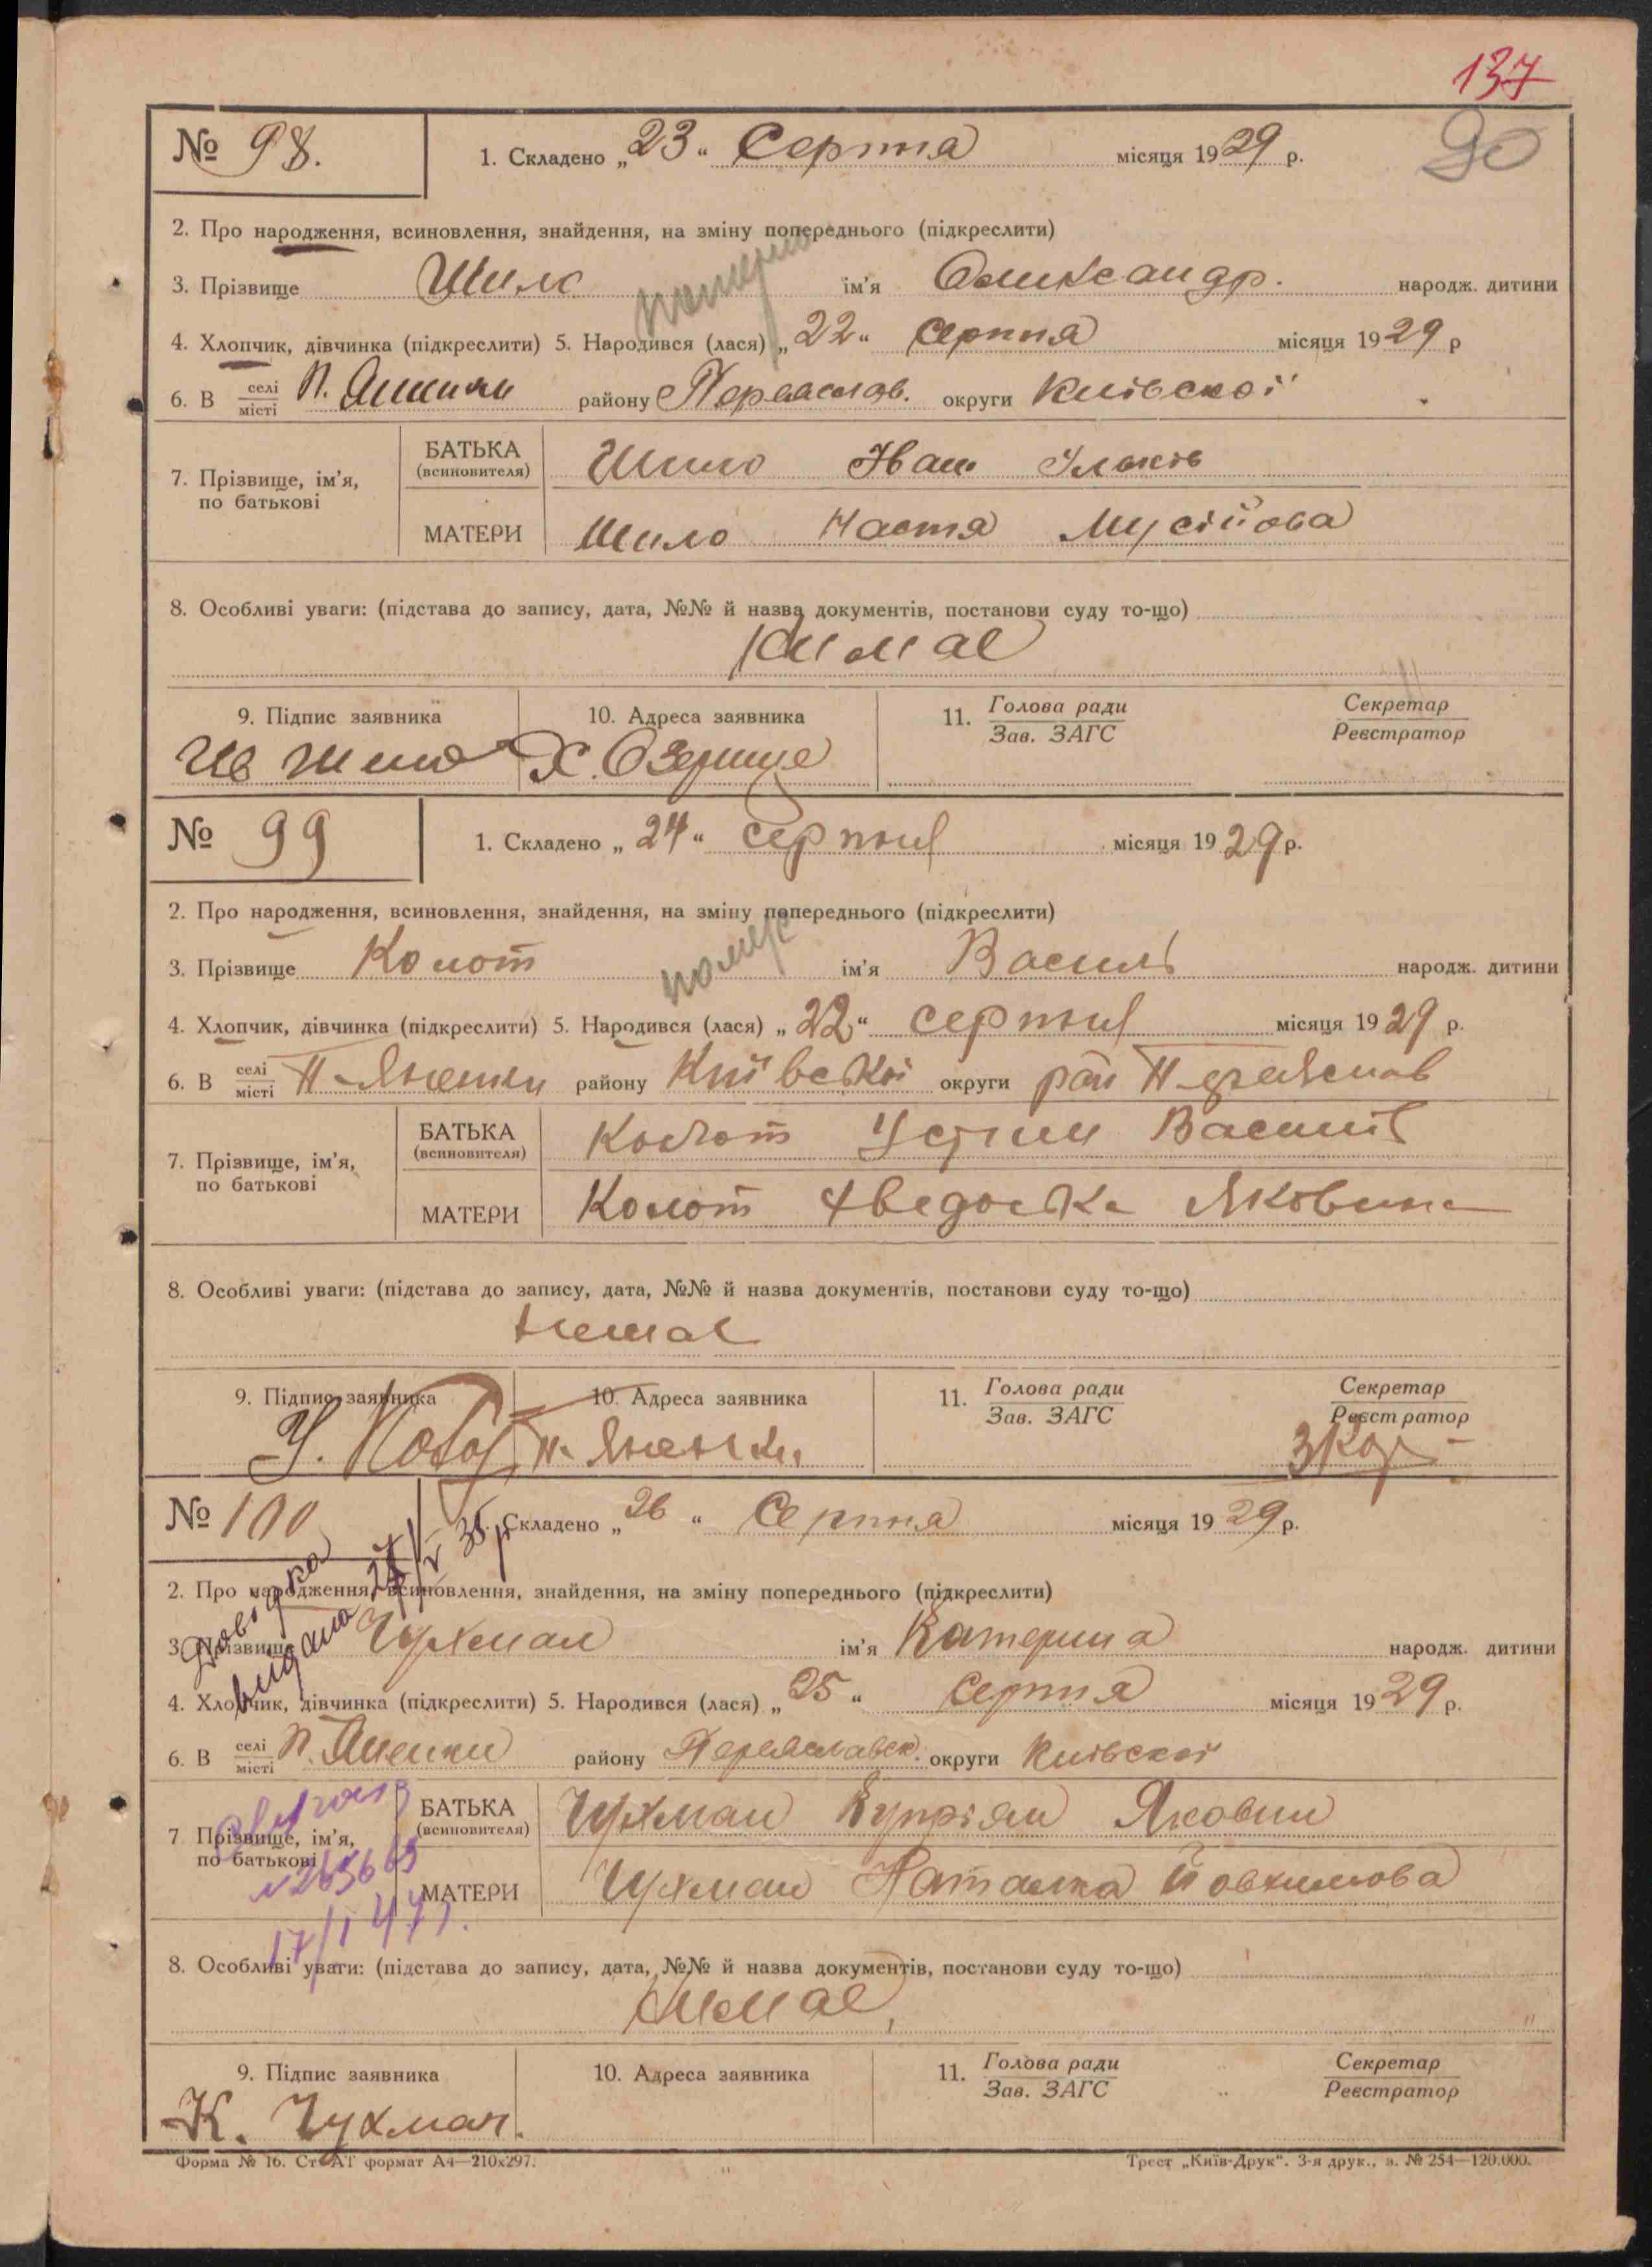 137
90
№ 98.
1. Складено „23“ Серпня місяця 1929 р.
2. Про народження, всиновлення, знайдення, на зміну попереднього (підкреслити)
3. Прізвище Шило ім'я Олександр. народж. дитини
4. Хлопчик, дівчинка (підкреслити) 5. Народився (лася) „22“ Серпня місяця 1929 р
6. В селі місті П. Яненки району Переяслав. округи Київської
7. Прізвище, ім'я, по батькові
БАТЬКА (всиновителя) Шило Іван Ільків
МАТЕРИ Шило Настя Мусійова
8. Особливі уваги: (підстава до запису, дата, №№ й назва документів, постанови суду то-що)
Нимае
9. Підпис заявника
10. Адреса заявника
11. Голова ради Зав. ЗАГС
Секретар Реєстратор
Ив Шило Х. Озерище
№ 99
1. Складено „24“ серпня місяця 1929 р.
2. Про народження, всиновлення, знайдення, на зміну попереднього (підкреслити)
помер
3. Прізвище Колот ім'я Василь народж. дитини
4. Хлопчик, дівчинка (підкреслити) 5. Народився (лася) „22“ серпня місяця 1929 р.
6. В селі місті П-Яненки району Київської округи рай Переяслав
7. Прізвище, ім'я, по батькові
БАТЬКА (всиновителя) Колот Устим Василів
МАТЕРИ Колот Хведоська Яковина
8. Особливі уваги: (підстава до запису, дата, №№ й назва документів, постанови суду то-що)
Немає
9. Підпис заявника
10. Адреса заявника
11. Голова ради Зав. ЗАГС
Секретар Реєстратор
У. Колот П-Яненки
№ 100
1. Складено „26“ Серпня місяця 1929 р.
Довідка видана
2. Про народження, всиновлення, знайдення, на зміну попереднього (підкреслити)
3. Прізвище Чухман ім'я Катерина народж. дитини
4. Хлопчик, дівчинка (підкреслити) 5. Народився (лася) „25“ Серпня місяця 1929 р.
6. В селі місті П. Яненки району Переяславськ. округи Київської
7 Прізвище, ім'я, по батькові
№ 263663
17/I 47г.
БАТЬКА (всиновителя) Чухман Купріян Яковин
МАТЕРИ Чухман Наталка Йовхимова
8. Особливі уваги: (підстава до запису, дата, №№ й назва документів, постанови суду то-що)
Нимае
9. Підпис заявника
10. Адреса заявника
11. Голова ради Зав. ЗАГС
Секретар Реєстратор
К. Чухман.
Форма № 16. СтАТ формат А4—210x297.
Трест „Київ-Друк“. 3-я друк., з. № 254—120.000.